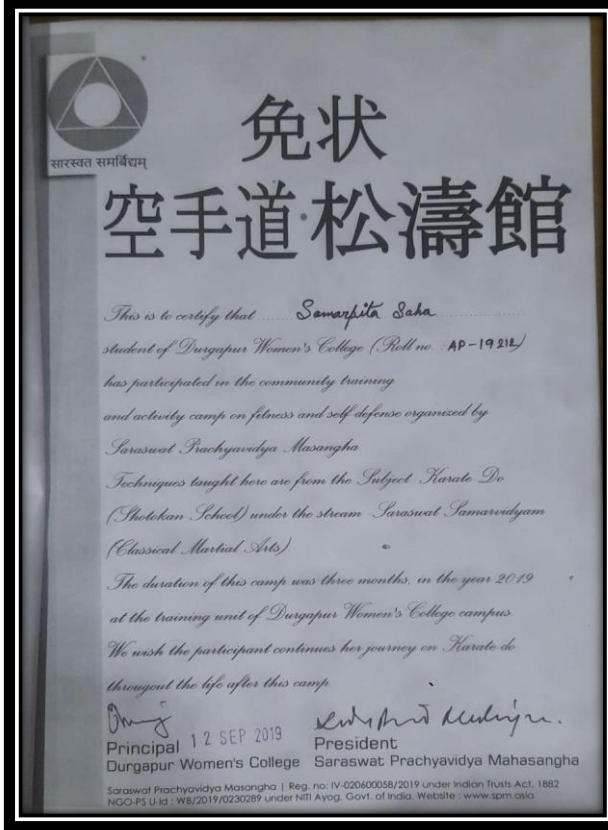 सारस्वत समर्विद्यम्
免状
空手道・松濤館
This is to certify that Samarpita Saha
student of Durgapur Women's College (Roll no. AP-19212)
has participated in the community training
and activity camp on fitness and self-defense organized by
Saraswat Prachyavidya Masangha
Techniques taught here are from the Subject Karate Do
(Shotokan School) under the stream Saraswat Samarvidyam
(Classical Martial Arts)
The duration of this camp was three months, in the year 2019
at the training unit of Durgapur Women's College campus
We wish the participant continues her journey on Karate do
througout the life after this camp
Principal 12 SEP 2019 President
Durgapur Women's College Saraswat Prachyavidya Mahasangha
Saraswat Prachyavidya Masangha | Reg. no: IV-020600058/2019 under Indian Trusts Act, 1882
NGO-PS U-Id : WB/2019/0230289 under NITI Ayog. Govt. of India. Website : www.spm.asia